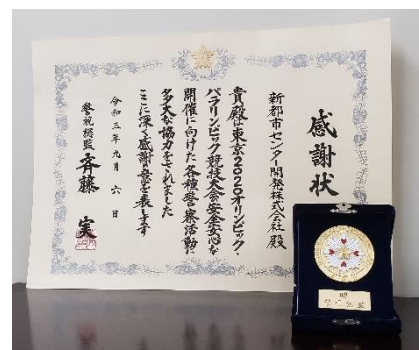 感謝状
新都市センター開発株式会社 殿
貴殿は東京2020オリンピック・
パラリンピック競技大会安全安心な
開催に向けた各種警察活動に
多大な協力をされました
ここに深く感謝の意を表します
令和三年九月六日
警視総監 斉藤 実
贈